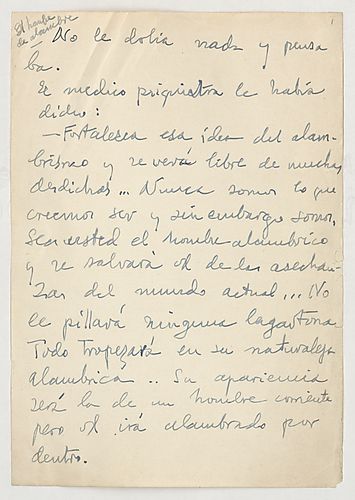 El hombre
de alambre
1
— No le dolía nada y pensa
ba.
El medico psiquiatra le había
dicho:
— Fortalezca esa idea del alam-
brismo y se verá libre de muchas
desdichas... Nunca somos lo que
creemos ser y sin embargo somos.
Sea usted el hombre alambrico
y se salvará Vd de las asechan-
zas del mundo actual... No
le pillará ninguna lagartona
Todo tropezará en su naturaleza
alambrica... Su apariencia
será la de un hombre corriente
pero Vd irá alambrado por
dentro.